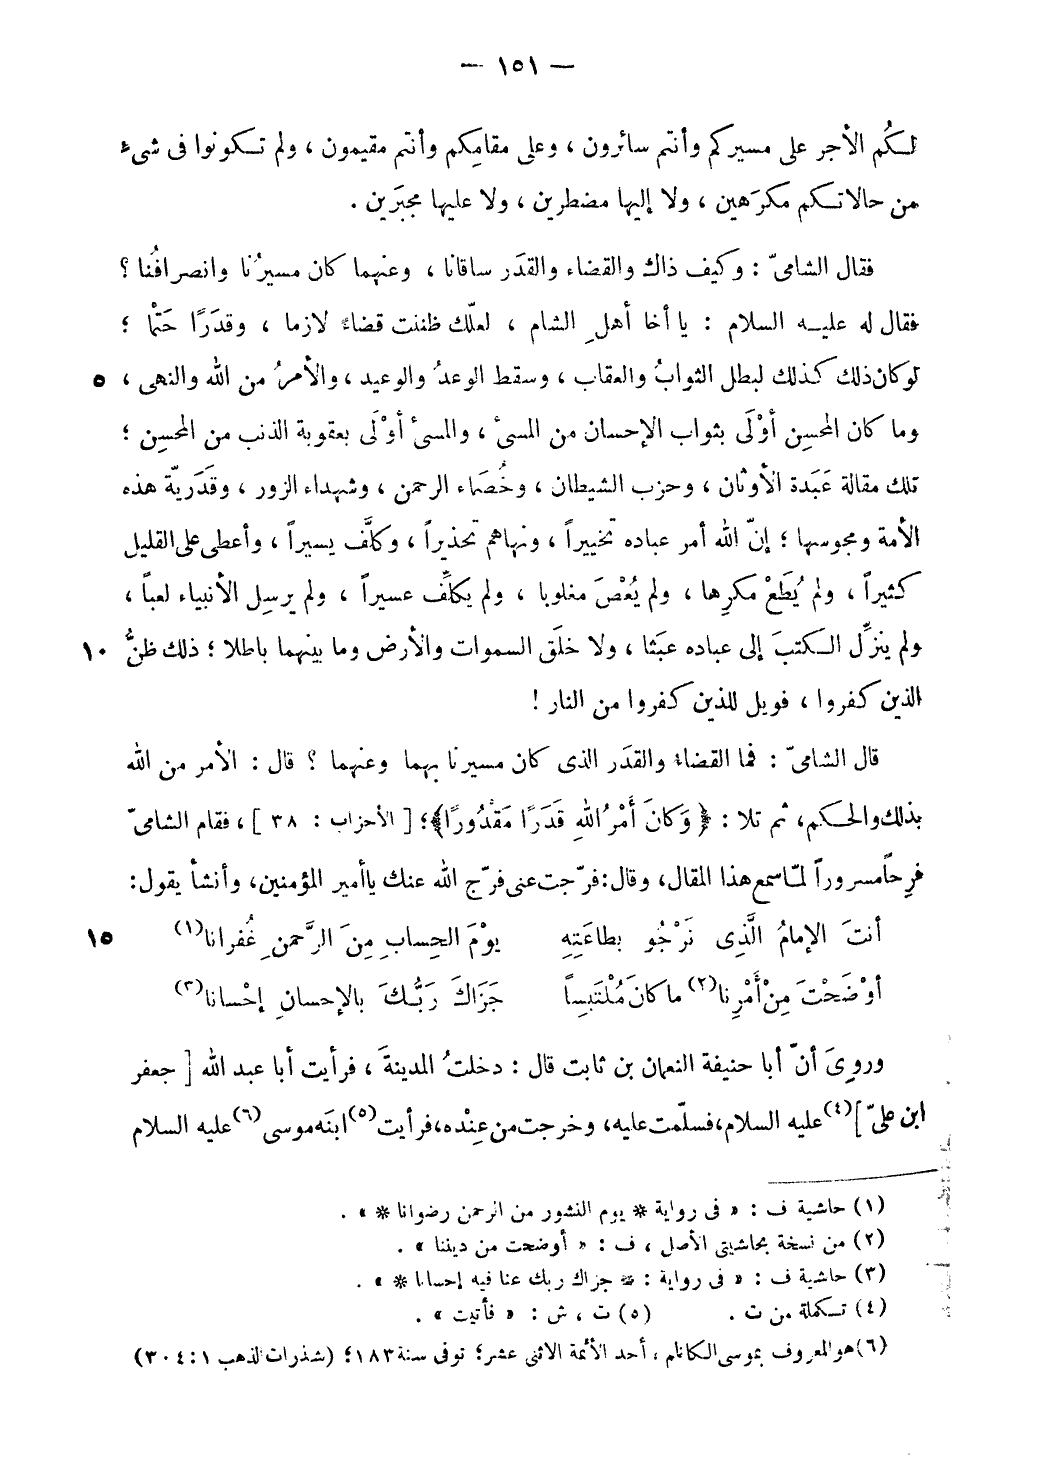 — ١٥١ —
لـكُم الأجر على مسيركم وأنتم سائرون ، وعلى مقامِكم وأنتم مقيمون ، ولم تـكونوا فى شىء
من حالاتـكم مكرَهين ، ولا إليها مضطرين ، ولا عليها مجبَرين .
فقال الشامىّ : وكيف ذاك والقضاء والقدَر ساقانا ، وعنهما كان مسيرُنا وانصرافُنا ؟
فقال له عليـه السلام : يا أخا أهلِ الشام ، لعلّك ظننت قضاءً لازما ، وقدَرًا حَتْمًا ؛
لو كان ذلك كـذلك لبطل الثوابُ والعقاب ، وسقط الوعدُ والوعيد ، والأمرُ من الله والنهى ، ٥
وما كان المحسِن أوْلَى بثواب الإحسان من المسىء ، والمسىء أوْلَى بعقوبة الذنب من المحسِن ؛
تلك مقالة عَبَدة الأوثان ، وحزب الشيطان ، وخُصَماء الرحمن ، وشهداء الزور ، وقَدَريّة هذه
الأمة ومجوسها ؛ إنّ الله أمر عباده تخييراً ، ونهاهم تحذيراً ، وكلَّف يسيراً ، وأعطى على القليل
كثيراً ، ولم يُطَعْ مكرِها ، ولم يُعْصَ مغلوبا ، ولم يكلِّف عسيراً ، ولم يرسِل الأنبياء لعباً ،
ولم ينزِّل الـكتبَ إلى عباده عبَثا ، ولا خلَق السموات والأرض وما بينهما باطلا ؛ ذلك ظنُّ ١٠
الذين كفروا ، فويل للذين كفروا من النار !
قال الشامىّ : فما القضاء والقدَر الذى كان مسيرنا بهما وعنهما ؟ قال : الأمر من الله
بذلك والحـكم، ثم تلا : ﴿ وَكانَ أَمْرُ اللهِ قَدَرًا مَقْدُورًا﴾؛ [ الأحزاب : ٣٨ ]، فقام الشامىّ
فرِحًا مسروراً لمّا سمع هذا المقال، وقال: فرّجت عنى فرّج الله عنك يا أمير المؤمنين، وأنشأ يقول:
أنتَ الإمامُ الَّذِى نَرْجُو بطاعَتِهِ يوْمَ الحِسابِ مِنَ الرَّحمنِ غُفرانا(١) ١٥
أوْضَحْتَ مِنْ أَمْرِنا(٢) ما كانَ مُلْتَبِساً جَزَاكَ رَبُّـكَ بالإحسانِ إحْسانا(٣)
وروِىَ أنّ أبا حنيفة النعمان بن ثابت قال : دخلتُ المدينةَ ، فرأيت أبا عبد الله [ جعفر
ابن علىّ ](٤) عليه السلام، فسلّمت عليه، وخرجت من عِنْده، فرأيت(٥) ابنَه موسى(٦) عليه السلام
(١) حاشية ف : « فى رواية * يوم النشور من الرحمن رضوانا * » .
(٢) من نسخة بحاشيتى الأصل ، ف : « أوضحت من ديننا » .
(٣) حاشية ف : « فى رواية : * جزاك ربك عنا فيه إحسانا * » .
(٤) تـكملة من ت . (٥) ت ، ش : « فأتيت » .
(٦) هو المعروف بموسى الكاظم ، أحد الأئمة الاثنى عشر؛ توفى سنة ١٨٣؛ (شذرات الذهب ١ : ٣٠٤)